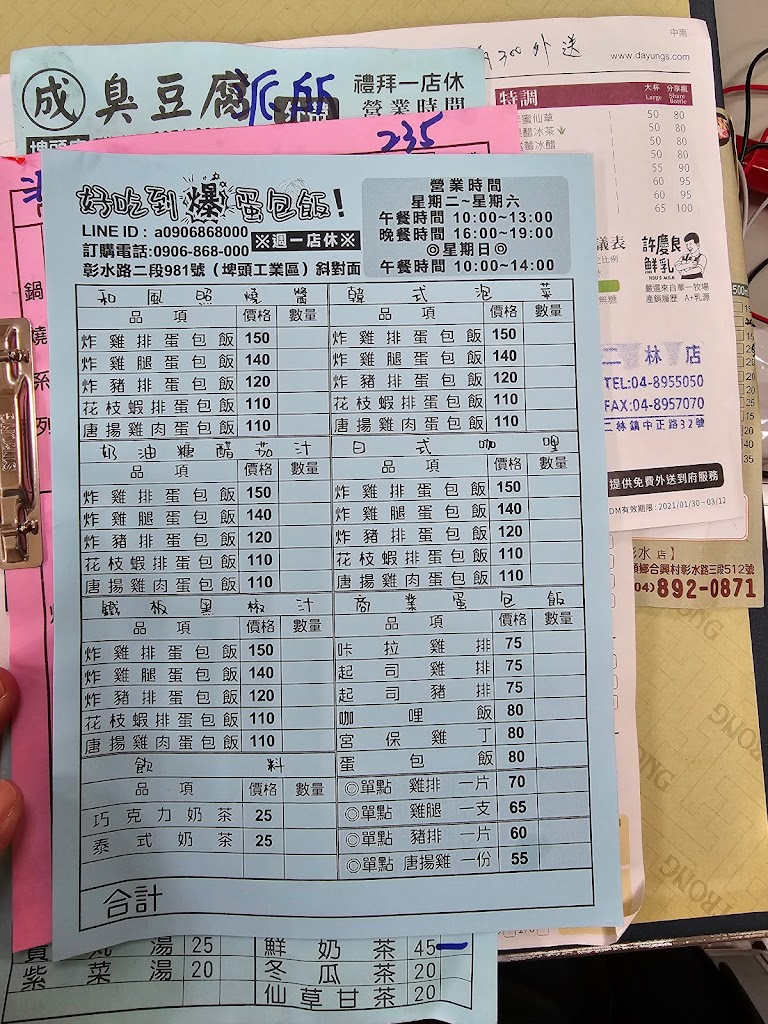 中南
滿300外送
www.dayungs.com
成 臭豆腐
禮拜一店休
營業時間
派所
235
特調
大杯 Large 分享瓶 Share Bottle
50 80
50 80
50 80
55 90
60 95
60 95
65 100
好吃到爆蛋包飯!
LINE ID: a0906868000
訂購電話:0906-868-000
※週一店休※
彰水路二段981號(埤頭工業區)斜對面
營業時間
星期二~星期六
午餐時間 10:00~13:00
晚餐時間 16:00~19:00
◎星期日◎
午餐時間 10:00~14:00
和風照燒醬
品項 價格 數量
炸雞排蛋包飯 150
炸雞腿蛋包飯 140
炸豬排蛋包飯 120
花枝蝦排蛋包飯 110
唐揚雞肉蛋包飯 110
韓式泡菜
品項 價格 數量
炸雞排蛋包飯 150
炸雞腿蛋包飯 140
炸豬排蛋包飯 120
花枝蝦排蛋包飯 110
唐揚雞肉蛋包飯 110
奶油糖醋茄汁
品項 價格 數量
炸雞排蛋包飯 150
炸雞腿蛋包飯 140
炸豬排蛋包飯 120
花枝蝦排蛋包飯 110
唐揚雞肉蛋包飯 110
日式咖哩
品項 價格 數量
炸雞排蛋包飯 150
炸雞腿蛋包飯 140
炸豬排蛋包飯 120
花枝蝦排蛋包飯 110
唐揚雞肉蛋包飯 110
鐵板黑椒汁
品項 價格 數量
炸雞排蛋包飯 150
炸雞腿蛋包飯 140
炸豬排蛋包飯 120
花枝蝦排蛋包飯 110
唐揚雞肉蛋包飯 110
商業蛋包飯
品項 價格 數量
咔拉雞排 75
起司雞排 75
起司豬排 75
咖哩飯 80
宮保雞丁 80
蛋包飯 80
◎單點 雞排 一片 70
◎單點 雞腿 一支 65
◎單點 豬排 一片 60
◎單點 唐揚雞 一份 55
飲料
品項 價格 數量
巧克力奶茶 25
泰式奶茶 25
合計
鍋燒系列
議表
許慶良鮮乳
HSU'S MILK
嚴選來自單一牧場
產銷履歷 A+乳源
二林店
TEL:04-8955050
FAX:04-8957070
二林鎮中正路32號
提供免費外送到府服務
DM有效期限:2021/01/30-03/12
彰水店】
頭鄉合興村彰水路三段512號
(04)892-0871
湯 25
紫菜湯 20
鮮奶茶 45
冬瓜茶 20
仙草甘茶 20